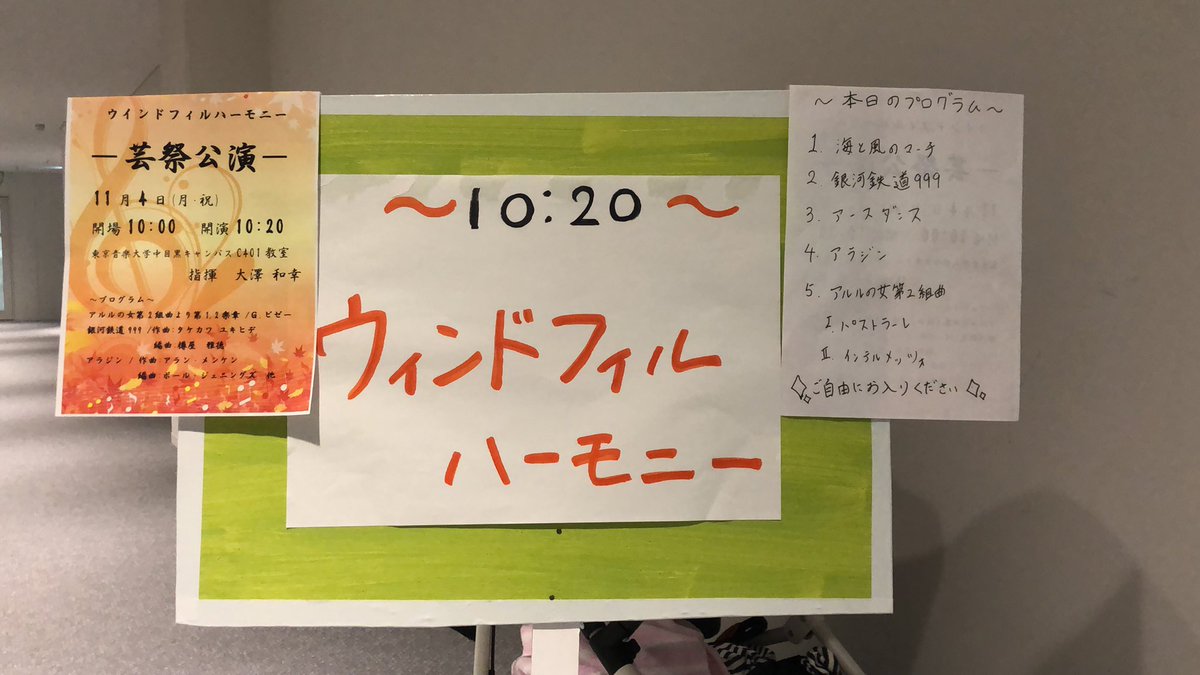 ウインドフィルハーモニー
―芸祭公演―
11月4日(月・祝)
開場10:00 開演10:20
東京音楽大学中目黒キャンパスC401教室
指揮 大澤 和幸
～プログラム～
アルルの女第2組曲より第1,2楽章/G.ビゼー
銀河鉄道999/作曲:タケカワ ユキヒデ
編曲 樽屋 雅徳
アラジン/作曲 アラン・メンケン
編曲 ポール・ジェニングズ 他
～10:20～
ウィンドフィル
ハーモニー
～本日のプログラム～
1. 海と風のマーチ
2. 銀河鉄道999
3. アースダンス
4. アラジン
5. アルルの女第2組曲
I. パストラーレ
II. インテルメッツォ
ご自由にお入りください